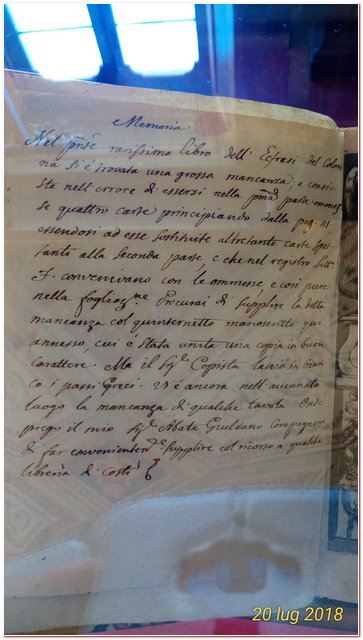 Memoria.
Nel pnte rarissimo libro dell' Ecfrasi del Colon
na si è trovata una grossa mancanza, e consi
ste nell'errore di essersi nella pma parte ommes
se quattro carte principiando dalla pag. 41.
essendosi ad esse sostituite altretante carte spet
tanti alla seconda parte e che nel registro
F. convenivano con le ommesse, e così pure
nella fogliazne Procurai di supplire la detta
mancanza col quinternetto manoscritto qui
annesso, cui è stata unita una copia in buon
carattere. Ma il Sigr Copista lasciò in bian
co i passi Greci. Vi è ancora nell' accennato
luogo la mancanza di qualche tavola. Onde
prego il mio Sigr Abate Compagnoni
di far convenientemte supplire col ricorso a qualche
libreria di
20 lug 2018